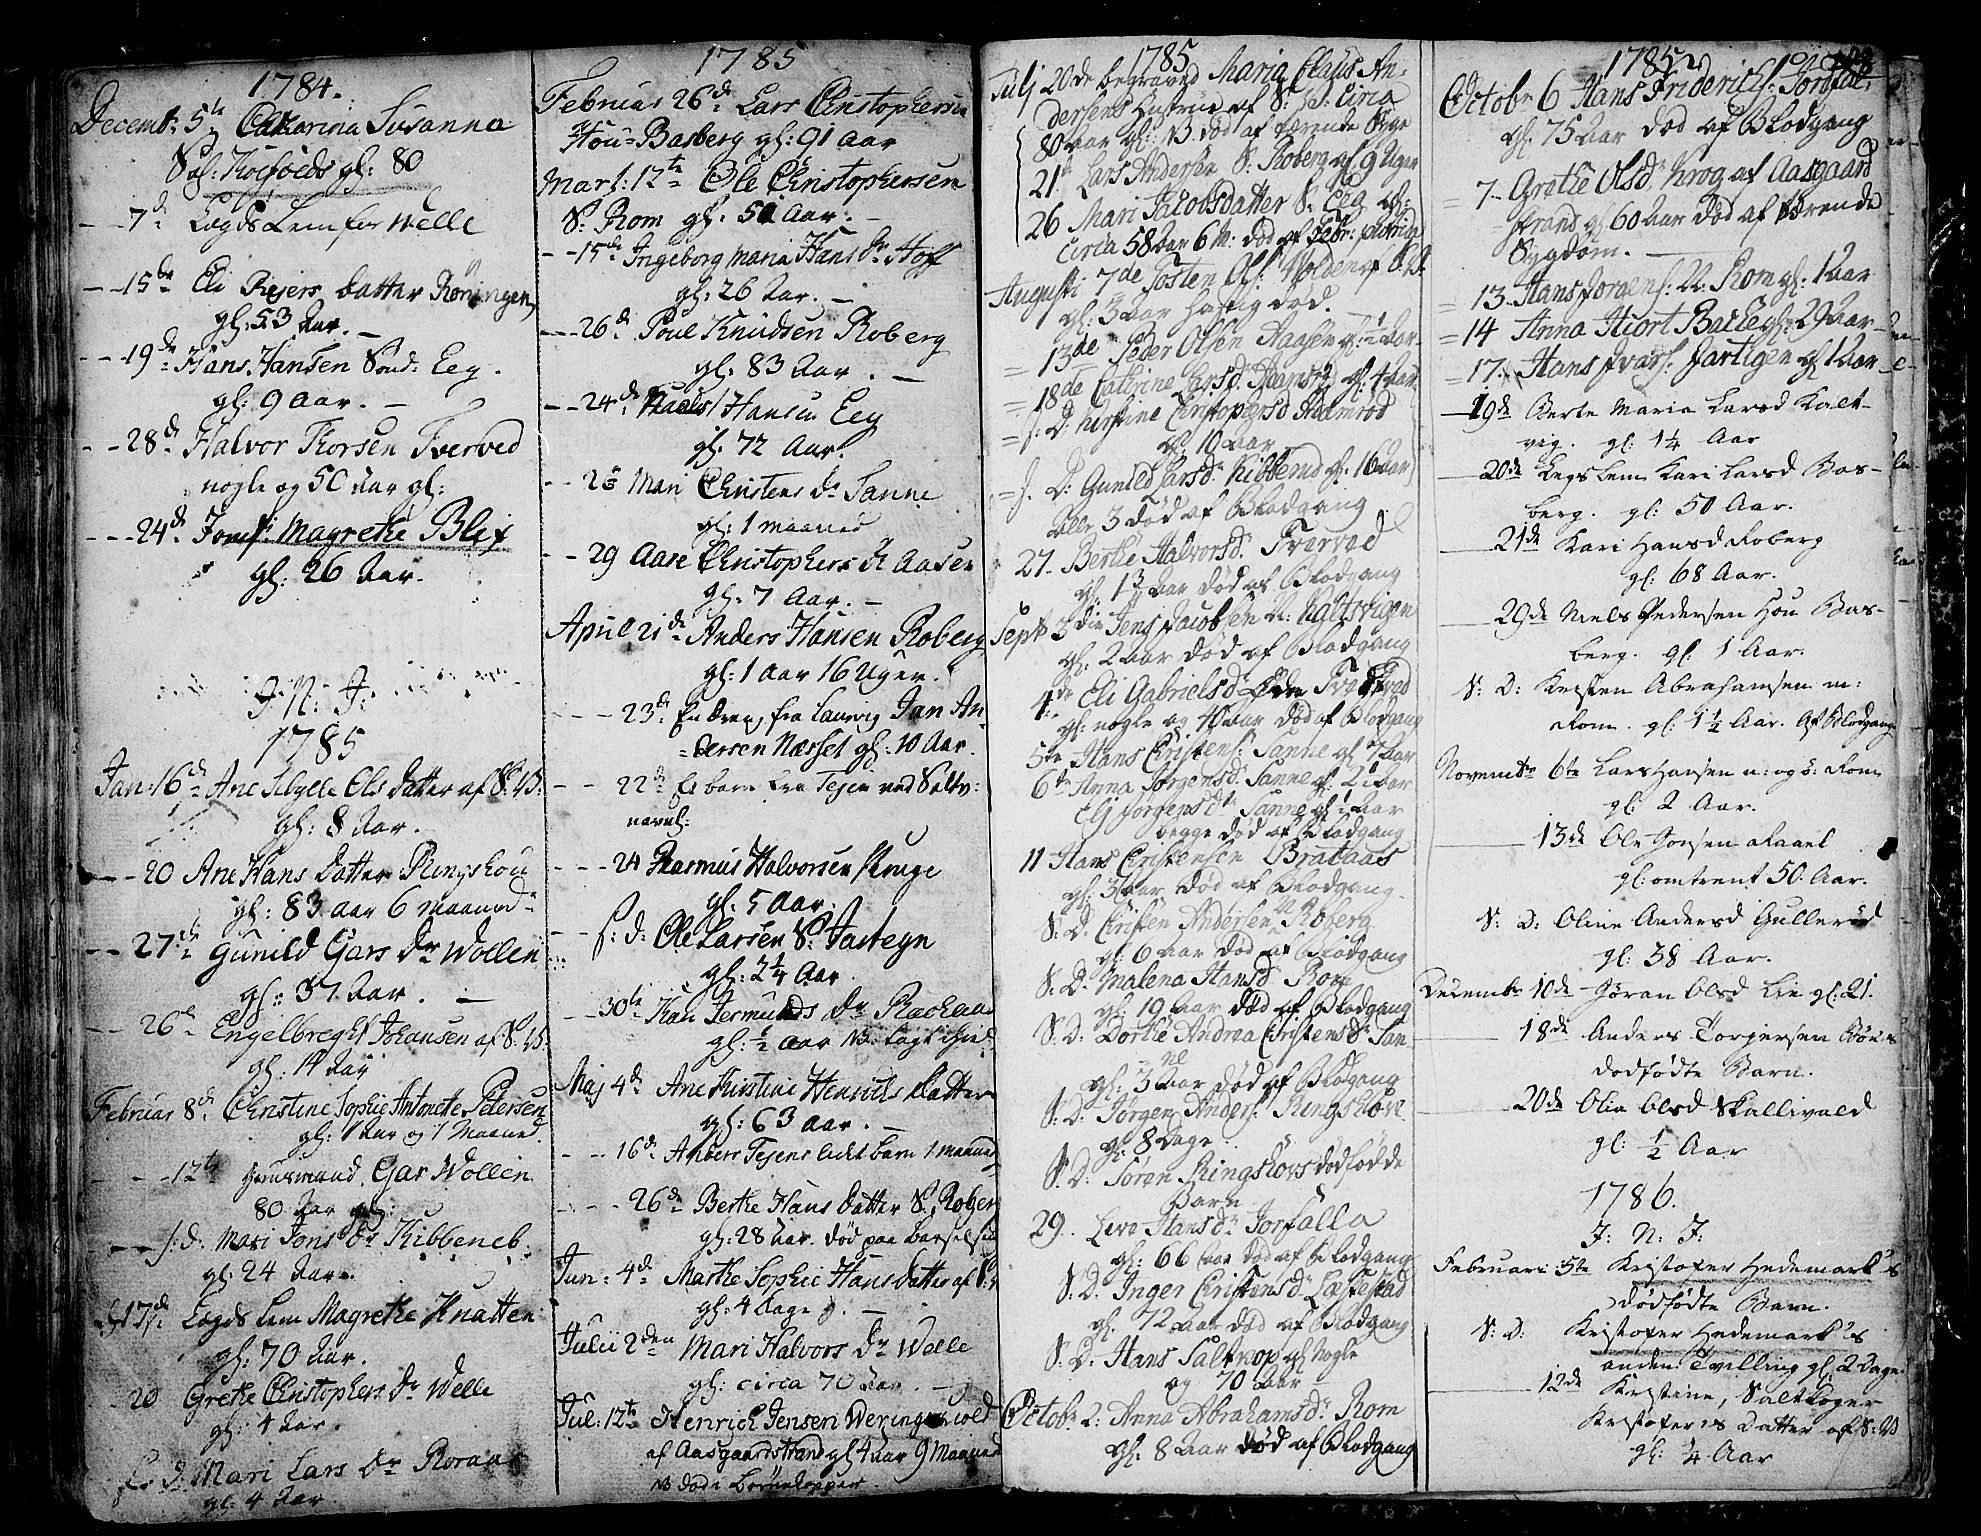 1784.
Decemb: 5te Catharina Susanna
Sal: Koefoeds gl: 80
7de Lægds Lem for Welle
15de Eli Rejers datter Röningen
gl: 53 Aar.
19de Hans Hansen Sönd: Eeg.
gl: 9 Aar.
28de Halvor Thorsen Tverved
nogle og 50 Aar gl:
24de Jomf: Magrethe Blix
gl: 26 Aar.
J: N: J:
1785
Jan: 16de Ane Sibylle Ols datter af S: V:
gl: 8 Aar.
20 Ane Hans datter Ringshou
gl: 83 aar 6 maaned
27de Gunild Gars Dr Wollen
gl: 37 Aar.
26de Engelbreght Johansen af S: V:
gl: 14 Dag
Februar 8de Christine Sophie Antonette Petersen
gl: 1 Aar og 1 Maaned.
12te Huusmand Gar Wollen
80 Aar gl:
s: d. Mari Jons Dr Kibbeneb
gl: 24 Aar.
17de Lægds Lem Magrethe Knatten
gl: 70 Aar.
20 Grethe Christophers Dr Welle
gl: 4 Aar.
s: d. Mari Lars Dr Roraas
gl: 4 Aar.
1785
Februar 26de Lars Christophersen
Hou=Basberg gl: 91 Aar
Marts: 12te Ole Christophersen
S: Rom gl: 50 Aar.
15de Ingeborg Maria Hans Dr Hoff
gl: 26 Aar.
26de Poul Knudsen Roberg
gl: 83 Aar.
24de Hansen Eeg
gl: 72 Aar.
26 Mari Christens Dr Sanne
gl: 1 maaned
29 Aare Christophers Dr Aasen
gl: 7 Aar.
April 21de Anders Hansen Roberg
gl: 1 Aar 16 Uger.
23de En dreng fra Laurvig Jan An=
=dersen Næsset gl: 10 Aar.
22de Et barn Tejen ved Saltv:
navnl:
24 Rasmus Halvorsen Kruge
gl: 5 Aar.
s: d: Ole Larsen S: Jastegn
gl: 2 1/4 Aar
30te Kari Jermunds Dr Rachaas
gl: 1/2 aar
Maj 4de Ane Kirstine Henrichs datter
gl: 63 aar.
16de Anders Tejens lidet barn 1 maaned
26de Berthe Hans datter S: Roberg
gl: 28 Aar. død paa Barselseng
Jun: 4de Marthe Sophie Hans datter af S: V
gl: 4 dage
Julii 2den Mari Halvors Dr Welle
gl: circa 70 Aar.
Jul: 12te Henrich Jensen Weringswold
af Aasgaardstrand gl 4 aar 9 Maaned
døde Börnekopper.
1785
Julj 20de begraved Maria Claus An=
dersens Hustrue af S: V: circa
80 Aar gl: død af tærende Syge
21de Lars Andersen S: Roberg gl 9 Uger
26 Mari Jacobsdatter S: Eeg gl:
circa 58 Aar 6 M: død af Febr: putrida
Augusti 7de Tosten Ols: Holden af S: V:
gl: 3 Aar hastig død.
13de Peder Olsen Aaasen gl: 1/2 Aar
18de Cathrine Larsd: Adamsröd gl: 4 Aar
s: D: Kirstine Christophersd Stalmröd
gl: 10 Aar
s. D: Gunild Larsd: Kibbeneb gl: 16 Aar
alle 3 død af Blodgang
27. Berthe Halvorsd: Tverved
gl: 1 3/4 Aar død af Blodgang
Septb 3die Jens Jacobsen N: Kaltvigen
gl: 2 Aar død af Blodgang
4de Eli Gabrielsd: Tverved
gl: nogle og 40 Aar død af Blodgang
5te Hans Cristens: Sanne gl 7 Aar
6te Anna Jørgensd: Sanne gl: 2 1/2 Aar
Elj Jørgensdr Sanne gl 1/2 Aar
begge død af Blodgang
11 Hans Cristensen Brataas
gl: 3 Aar død af Blodgang
S: D. Cristen Andersen N: Roberg
gl: 6 Aar død af Blodgang
S: D. Malena Hansd: Rom
gl: 19 Aar død af Blodgang
S: D: Dorthe Andrea Cristensd: San-
ne
gl: 3 Aar død af Blodgang
S: D: Jørgen Anders: Ringshove
gl: 8 Dage
S: D: Søren Ringshovs dødfødde
Barn
29. Live Hansd: Jorfalla
gl: 66 Aar død af Blodgang
S: D. Inger Cristensd: Løfstad
gl. 72 Aar død af Blodgang
S: D: Hans Saltkop gl Nogle
og 70 Aar
Octobr 2: Anna Abrahamsd: Rom
gl: 8 Aar død af Blodgang
1785
Octobr 6 Hans Friderichs: Jorsfal:
gl. 75 Aar død af Blodgang
7. Grethe Olsd: Krog af Aasgaard
strand gl 60 Aar død af tærende
Sygdom.
13. Hans Jørgens: N: Rom gl: 1 Aar
14 Anna Hiort Barlegh: 29 Aar
17. Hans Ivars: Jartigen gl 1 Aar
19de Berte Maria Larsd Kalt-
vig. gl: 1 1/4 Aar
20de Legslem Kari Larsd Bas-
berg. gl: 50 Aar.
21de Kari Hansd Roberg
gl: 68 Aar.
29de Niels Pedersen Hou Bas-
berg. gl: 1 Aar.
S: D: Kristen Abrahamsen n:
Rom. gl: 1 1/2 Aar. Af Blodgang
Novembr 6te Lars Hansen n: og ö: Rom
gl: 2 Aar.
13de Ole Jonsen Ravel
gl: omtrent 50. Aar.
S: D: Oline Andersd Gulleröd
gl: 38 Aar.
Decembr 10de Jöran Olsd Lie gl: 21.
18de Anders Torjersen Röers
dødfödte Barn.
20de Olia Olsd Skallivald
gl: 1/2 Aar
1786.
J: N: J:
Februari 5te Kristofer Hedemark's
dødfödte Barn.
S: D: Kristofer Hedemark's
anden Tvilling gl: 2 Dage.
12de Kristine, Saltkoger
Kristofers Datter af S: V
gl: 1/4 Aar